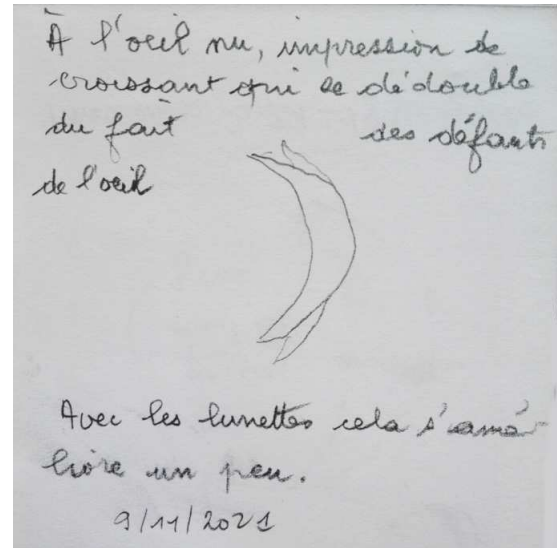 À l'oeil nu, impression de
croissant qui se dédouble
du fait des défauts
de l'oeil
Avec les lunettes cela s'amé-
liore un peu.
9/11/2021